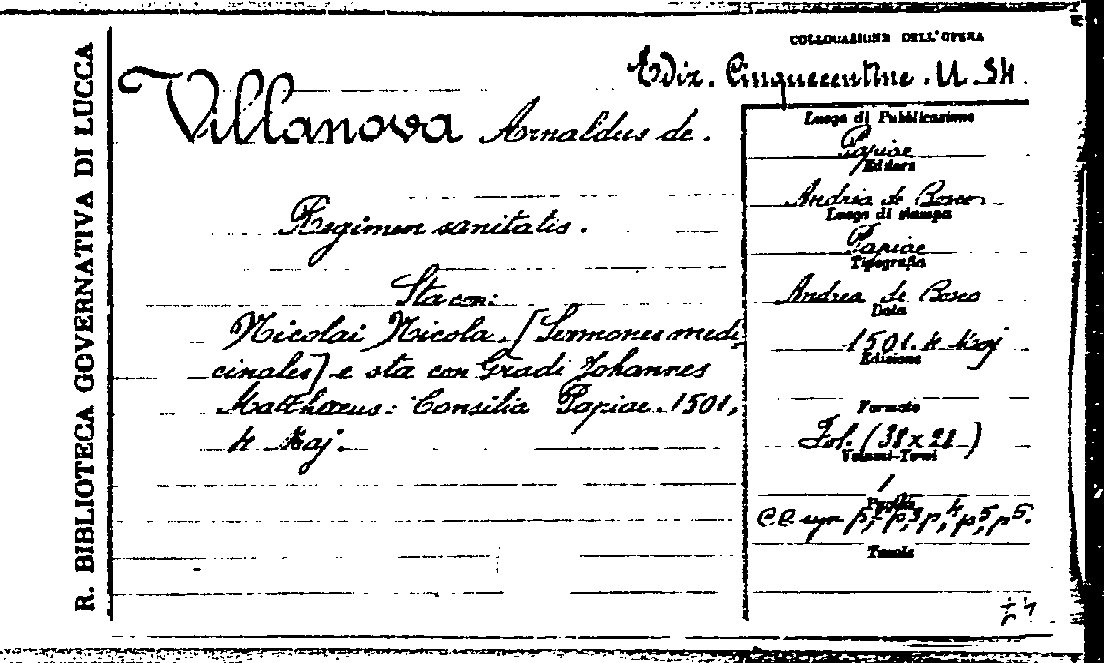 R. BIBLIOTECA GOVERNATIVA DI LUCCA
COLLOCAZIONE DELL'OPERA
Ediz. Cinquecentine. U. 34.
Villanova Arnaldus de.
Regimen sanitatis.
Sta con:
Nicolai Nicola. [Sermones medi
cinales] e sta con Gradi Johannes
Matthaeus: Consilia Papiae. 1501,
4 Maj.
Luogo di Pubblicazione
Papiae
Editore
Andrea de Bosco
Luogo di stampa
Papiae
Tipografia
Andrea de Bosco
Data
1501. 4 Maj
Edizione
Formato
Fol. (38 x 28)
Volumi-Tomi
1
Pagine
p, p,3 p,4 p,5 p5.
Tavole